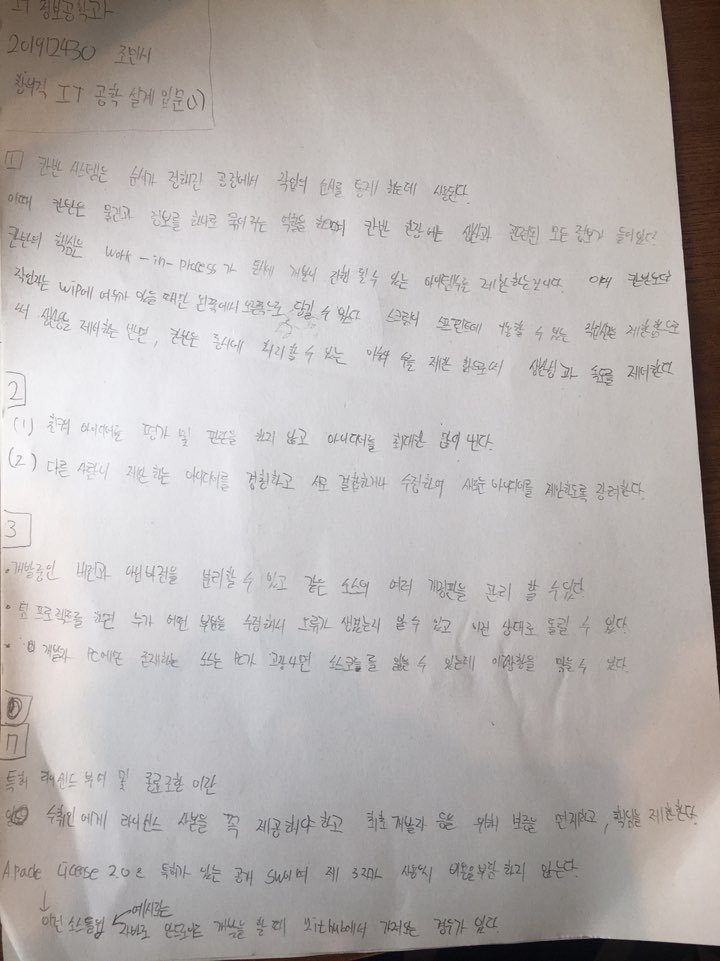 IT 정보공학과
201912430 조민시
창의적 IT 공학 설계 입문(1)
1 칸반 시스템은 순서가 정해진 공정에서 작업의 순서를 통제 하는데 사용된다.
이때 칸반은 물건과 정보를 하나로 묶어 주는 역할을 하며 칸반 현장에는 생산과 관련된 모든 정보가 들어있다.
칸반의 핵심은 work-in-process가 동시에 진행 될 수 있는 제한하는것이다. 이때 칸반보다
작업자는 WIP에 여유가 있을 때만 왼쪽에서 오른쪽으로 당길 수 있다 스크럼의 스프린트에 수 있는 제한함으로
써 생산성을 제어하는 반면, 칸반은 동시에 처리할 수 있는 수를 제한 함으로써 생산성과 속도를 제어한다
2
(1) 아이디어를 평가 및 판단을 하지 않고 아이디어를 최대한 많이 낸다.
(2) 다른 사람이 제안 하는 아이디어를 경청하고 서로 결합하거나 수정하여 새로운 아이디어를 제안하도록 격려한다.
3
• 개발중인 버전과 버전을 분리할 수 있고 같은 소스의 여러 개정판을 관리 할 수 있다
• 팀 프로젝트를 하면 누가 어떤 부분을 수정해서 오류가 생겼는지 알 수 있고 이전 상태로 돌릴 수 있다.
• 개발자 PC에만 존재하는 소스는 PC가 고장나면 소스코드를 잃는 수 있는데 이상황을 막을 수 있다.
7
특허 라이선스 부여 및 종료조항 이란
수취인에게 라이선스 사본을 꼭 제공해야 하고 최초개발자 등을 위해 보증을 면제하고, 책임을 제한한다.
Apache License 2.0은 특허가 있는 공개 SW이며 제 3자가 사용시 비용을 부담 하지 않는다.
이런 소스들의
예시로는
자바로 안드로이드 개발을 할 때 github에서 가져오는 경우가 있다.